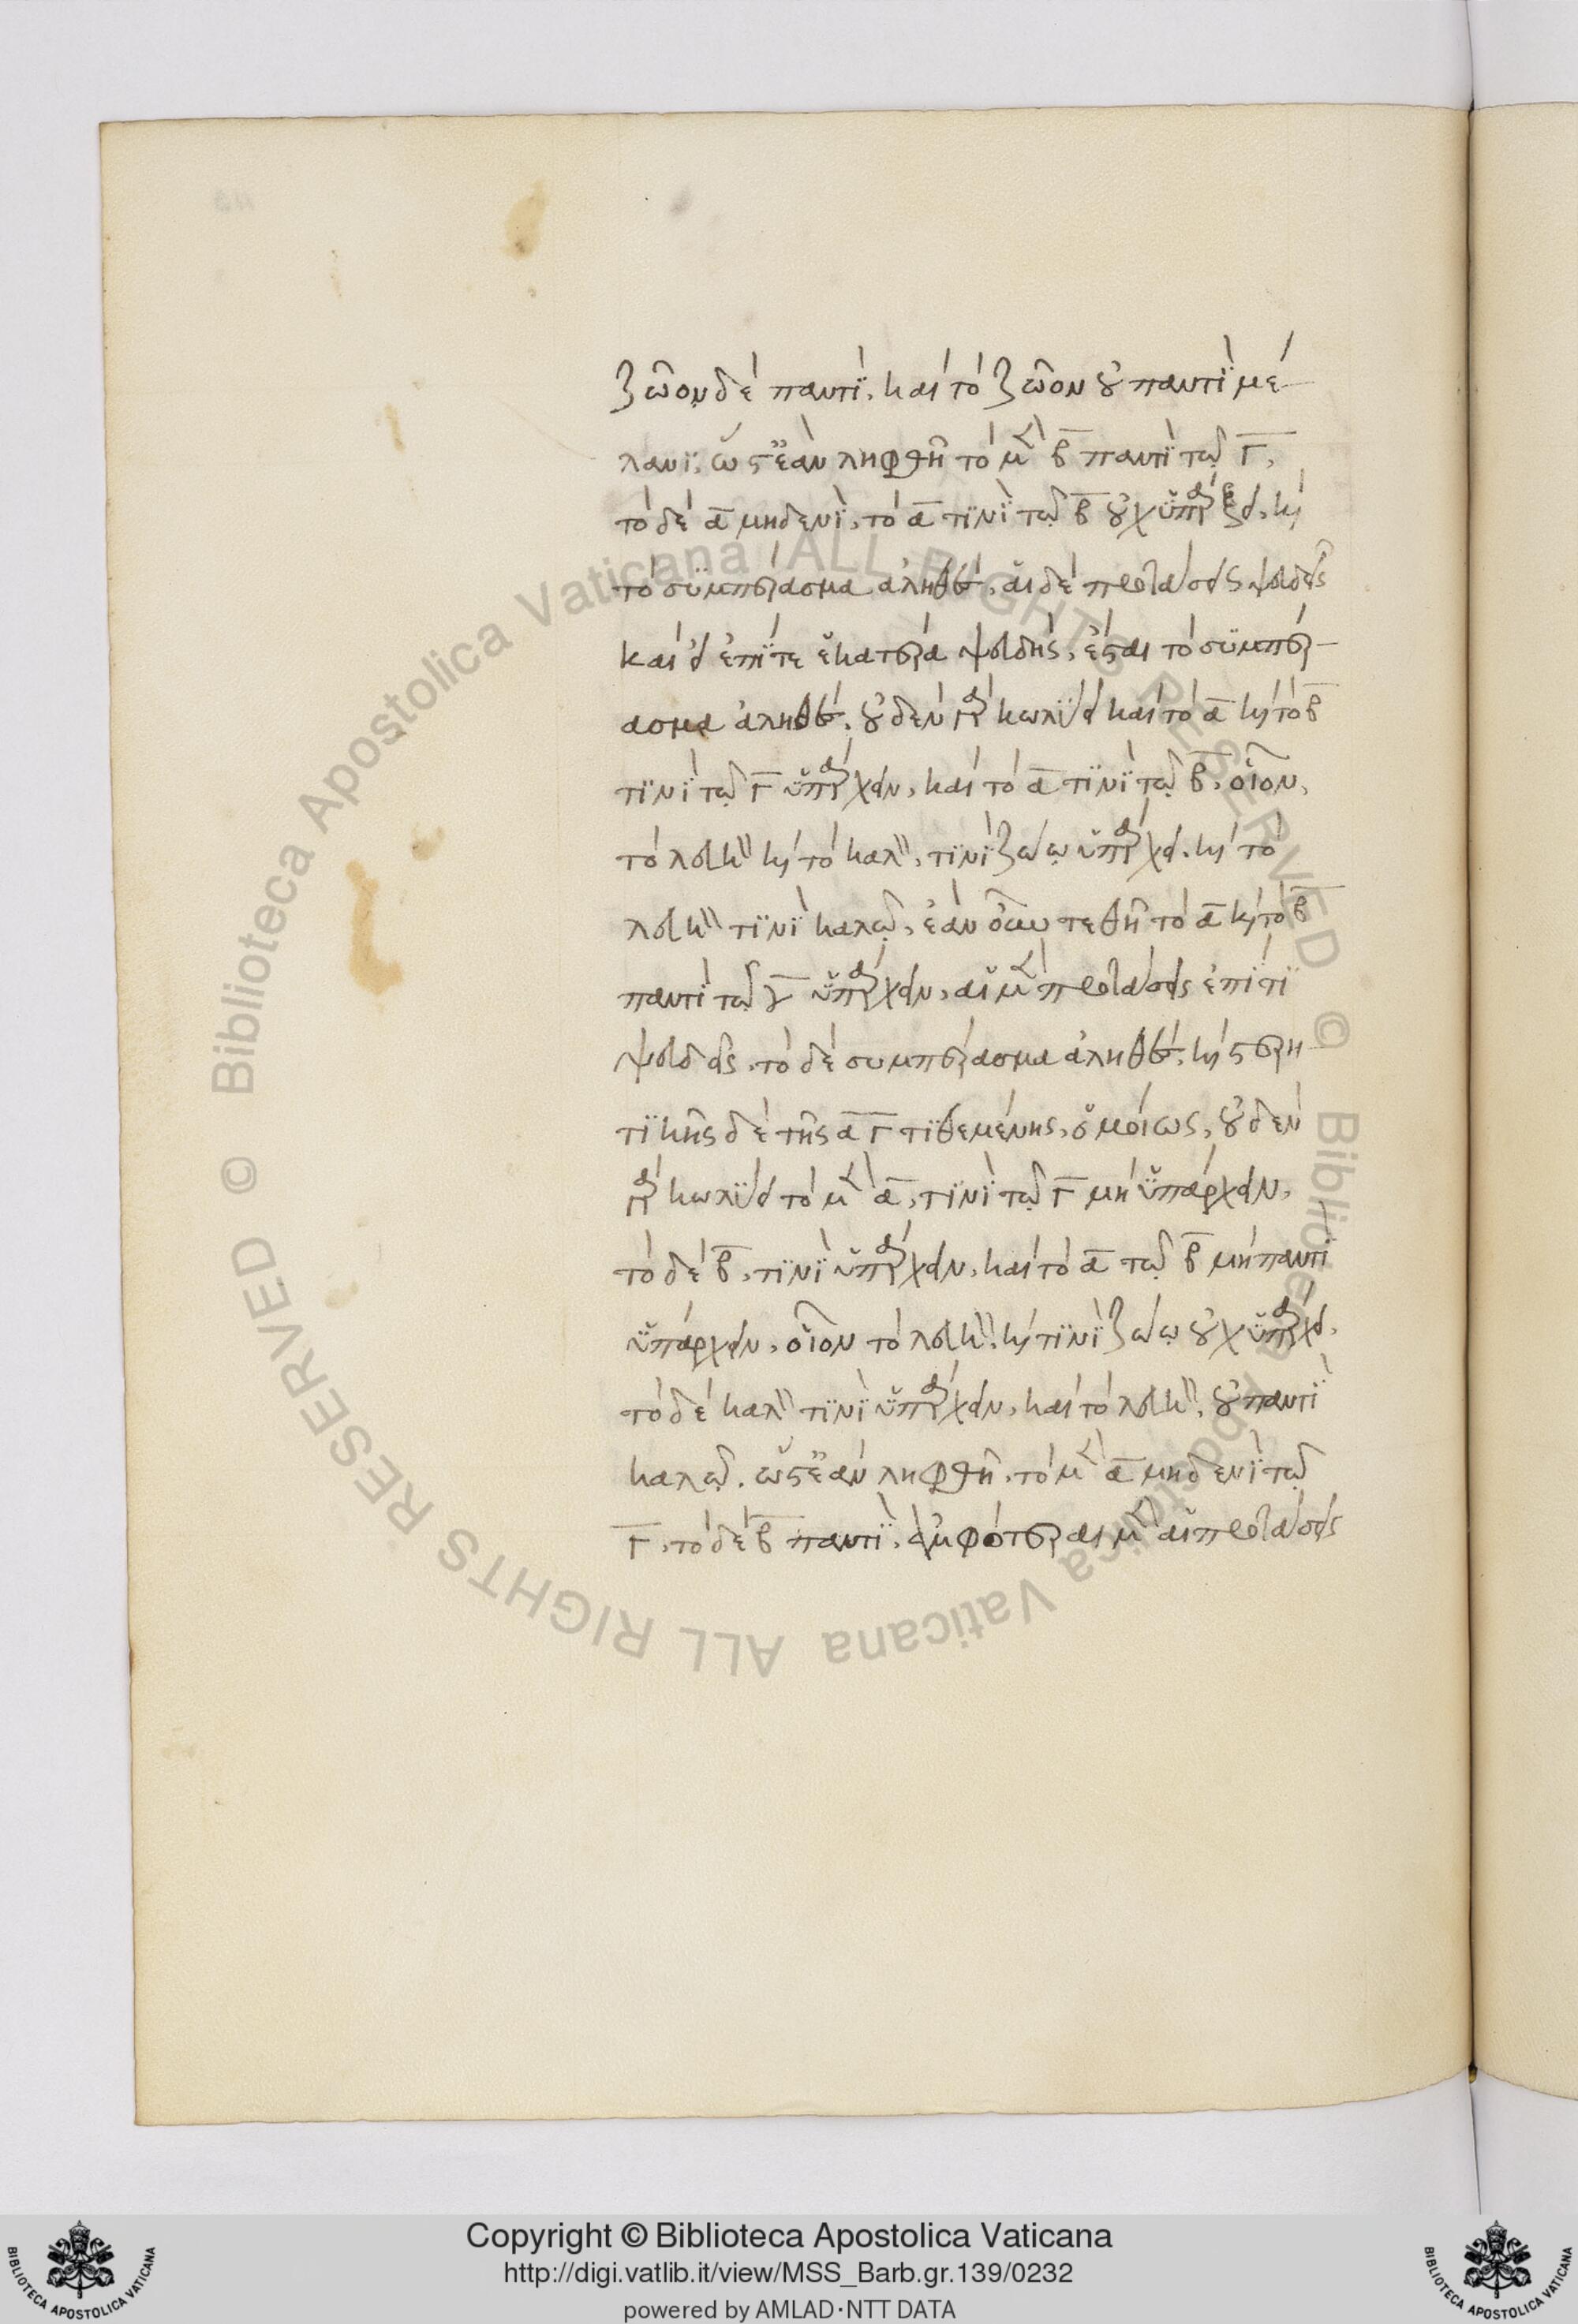 ζῶον δὲ παντί. καὶ τὸ ζῶον οὐ παντὶ μέ-
λανι. ὥστ' ἐὰν ληφθῆ τὸ μὲν β παντὶ τῶ γ,
τὸ δὲ α μηδενὶ, τὸ α τινὶ τῶ β οὐχ ὑπάρξει. καὶ
τὸ συμπέρασμα ἀληθὲς, αἱ δὲ προτάσεις ψευδεῖς
καὶ εἰ ἐπί τι ἑκατέρα ψευδὴς, ἔσται τὸ συμπέρ-
ασμα ἀληθές. οὐδὲν γὰρ κωλύει καὶ τὸ α καὶ τὸ β
τινὶ τῶ γ ὑπάρχειν, καὶ τὸ α τινὶ τῶ β. οἷον,
τὸ λευκὸν καὶ τὸ καλὸν, τινὶ ζώω ὑπάρχει. καὶ τὸ
λευκὸν τινὶ καλῶ. ἐὰν οὖν τεθῆ τὸ α καὶ τὸ β
παντὶ τῶ γ ὑπάρχειν, αἱ μὲν προτάσεις ἐπί τι
ψευδεῖς. τὸ δὲ συμπέρασμα ἀληθές. καὶ στερη-
τικῆς δὲ τῆς α γ τιθεμένης, ὁμοίως, οὐδὲν
γὰρ κωλύει τὸ μὲν α, τινὶ τῶ γ μὴ ὑπάρχειν,
τὸ δὲ β, τινὶ ὑπάρχειν, καὶ τὸ α τῶ β μὴ παντὶ
ὑπάρχειν, οἷον τὸ λευκὸν. καὶ τινὶ ζώω οὐχ ὑπάρχει.
τὸ δὲ καλὸν τινὶ ὑπάρχειν, καὶ τὸ λευκὸν, οὐ παντὶ
καλῶ. ὥστ' ἐὰν ληφθῆ. τὸ μὲν α μηδενὶ τῶ
γ, τὸ δὲ β παντὶ. ἀμφότεραι μὲν αἱ προτάσεις
Copyright © Biblioteca Apostolica Vaticana
http://digi.vatlib.it/view/MSS_Barb.gr.139/0232
powered by AMLAD·NTT DATA
© Biblioteca Apostolica Vaticana ALL RIGHTS RESERVED
© Biblioteca Apostolica Vaticana ALL RIGHTS RESERVED
BIBLIOTECA APOSTOLICA VATICANA
BIBLIOTECA APOSTOLICA VATICANA